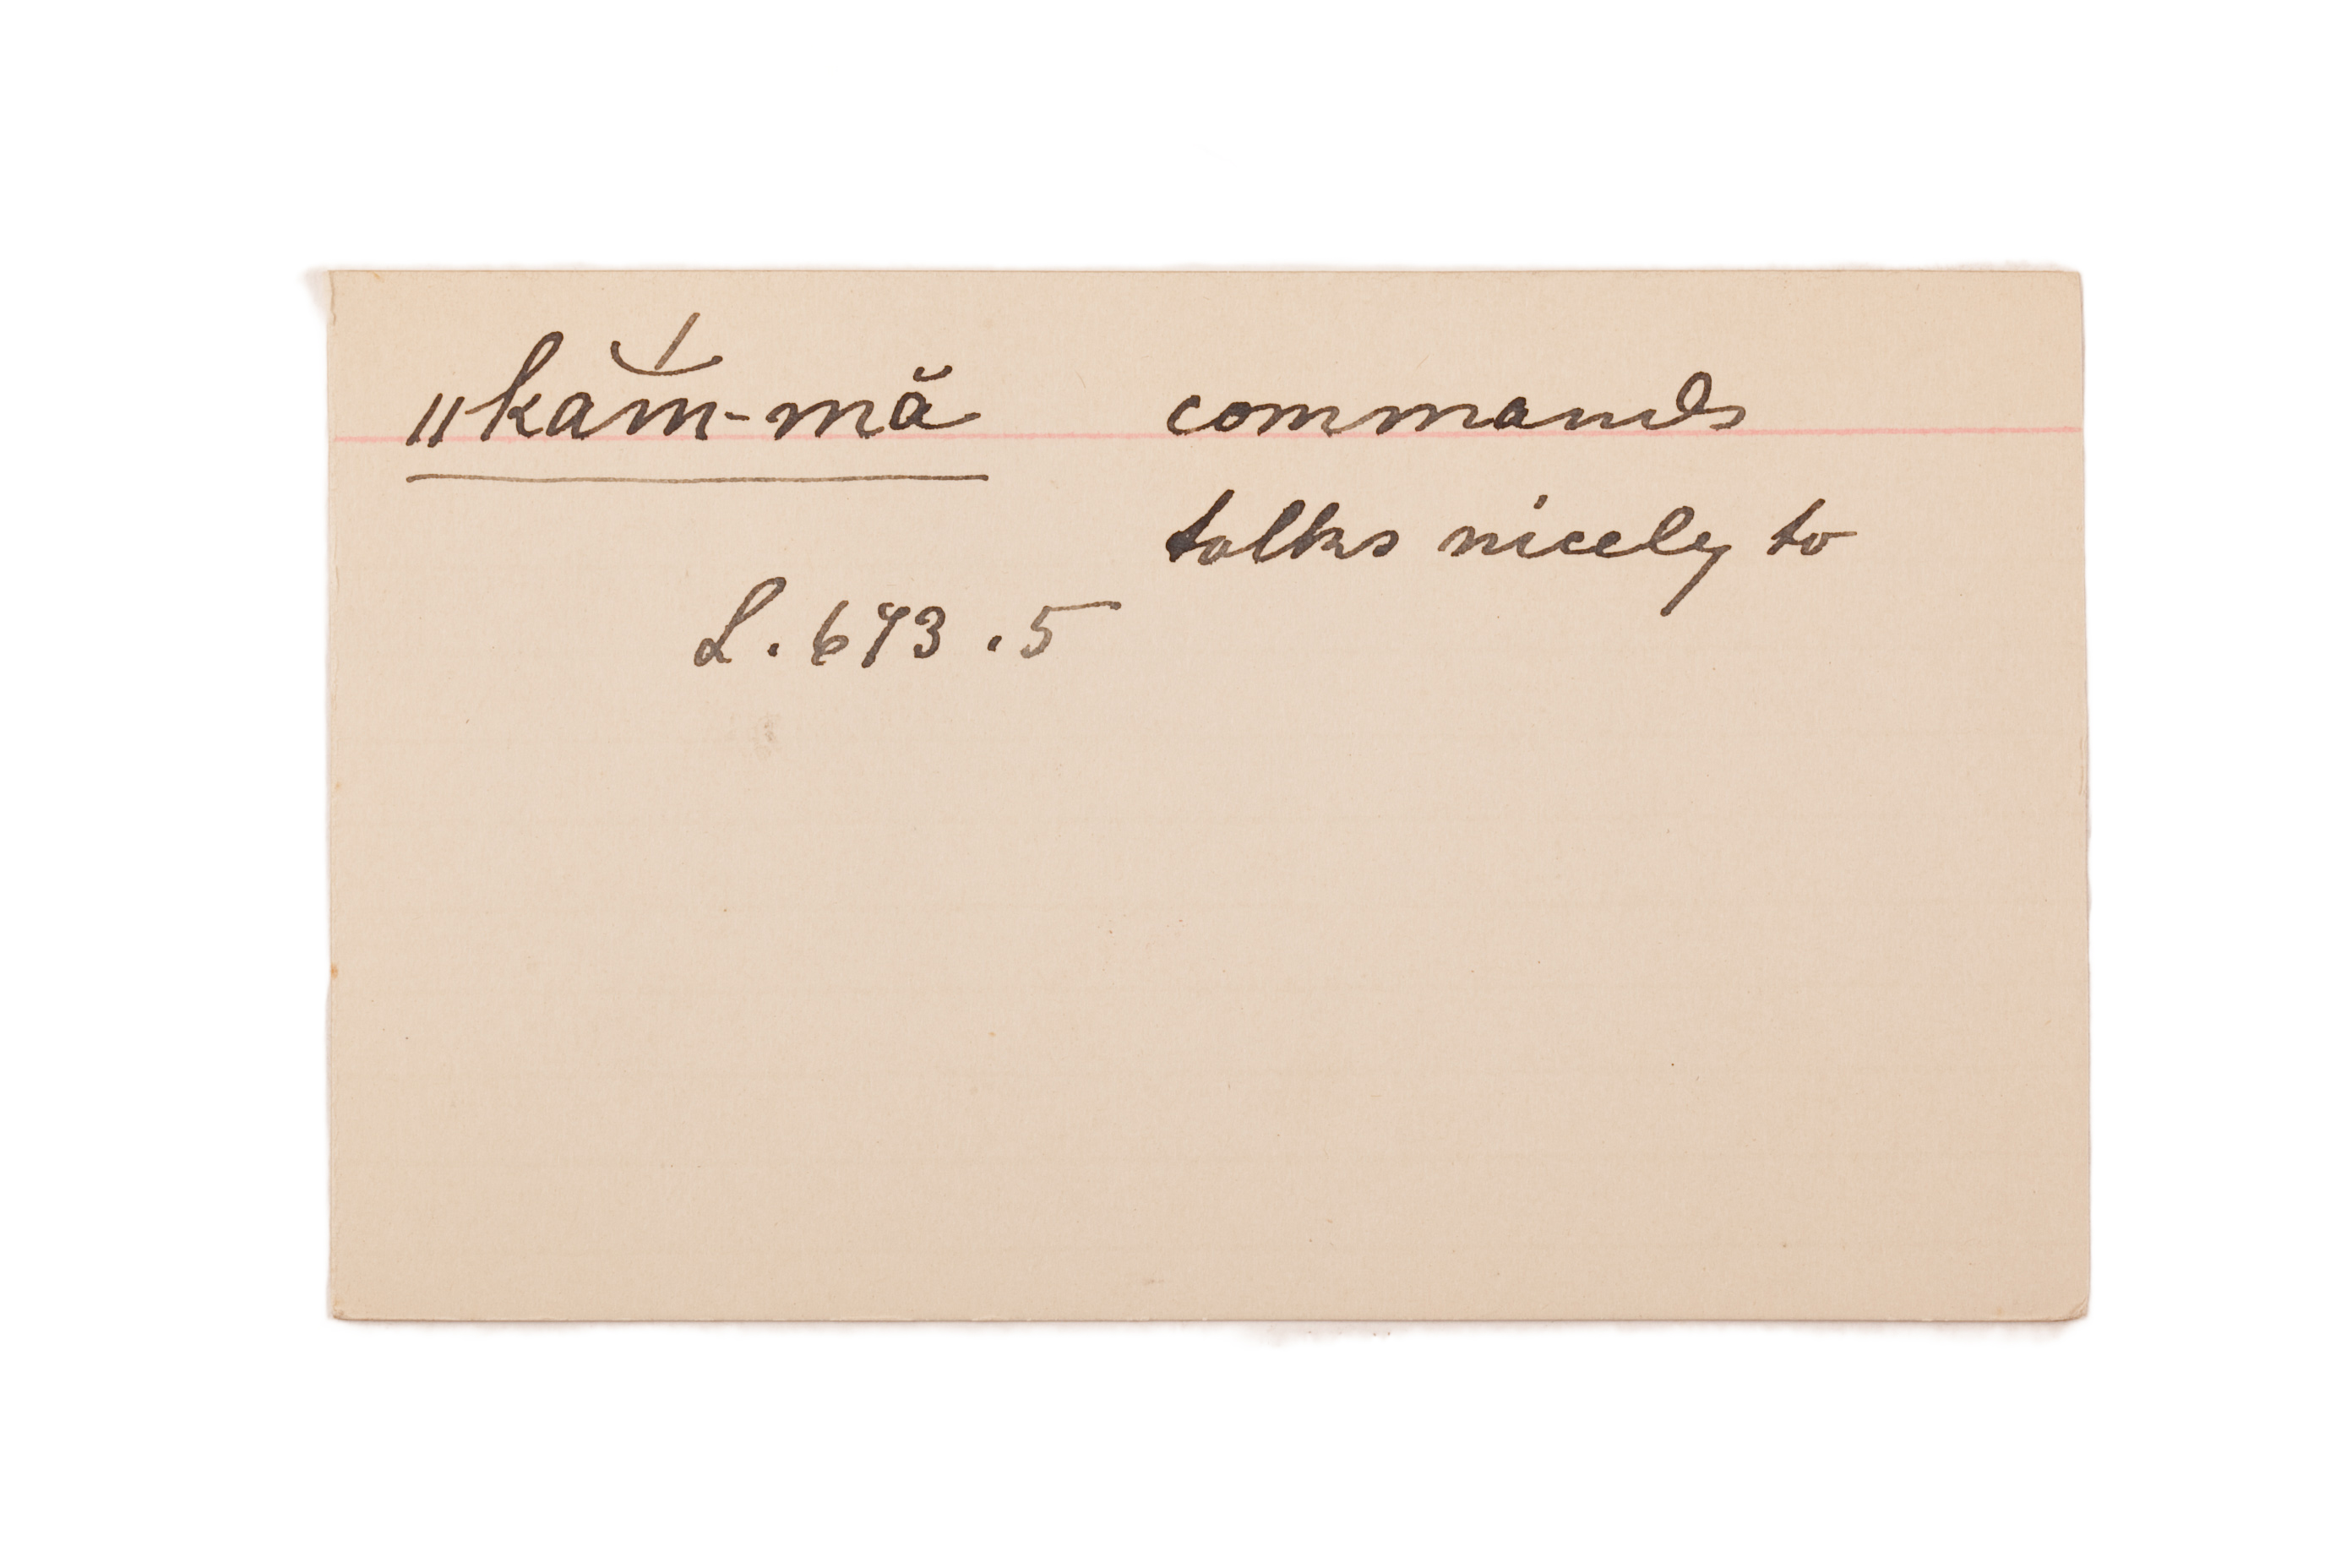 ǁkắm-mă commands
talks nicely to
L. 673 . 5